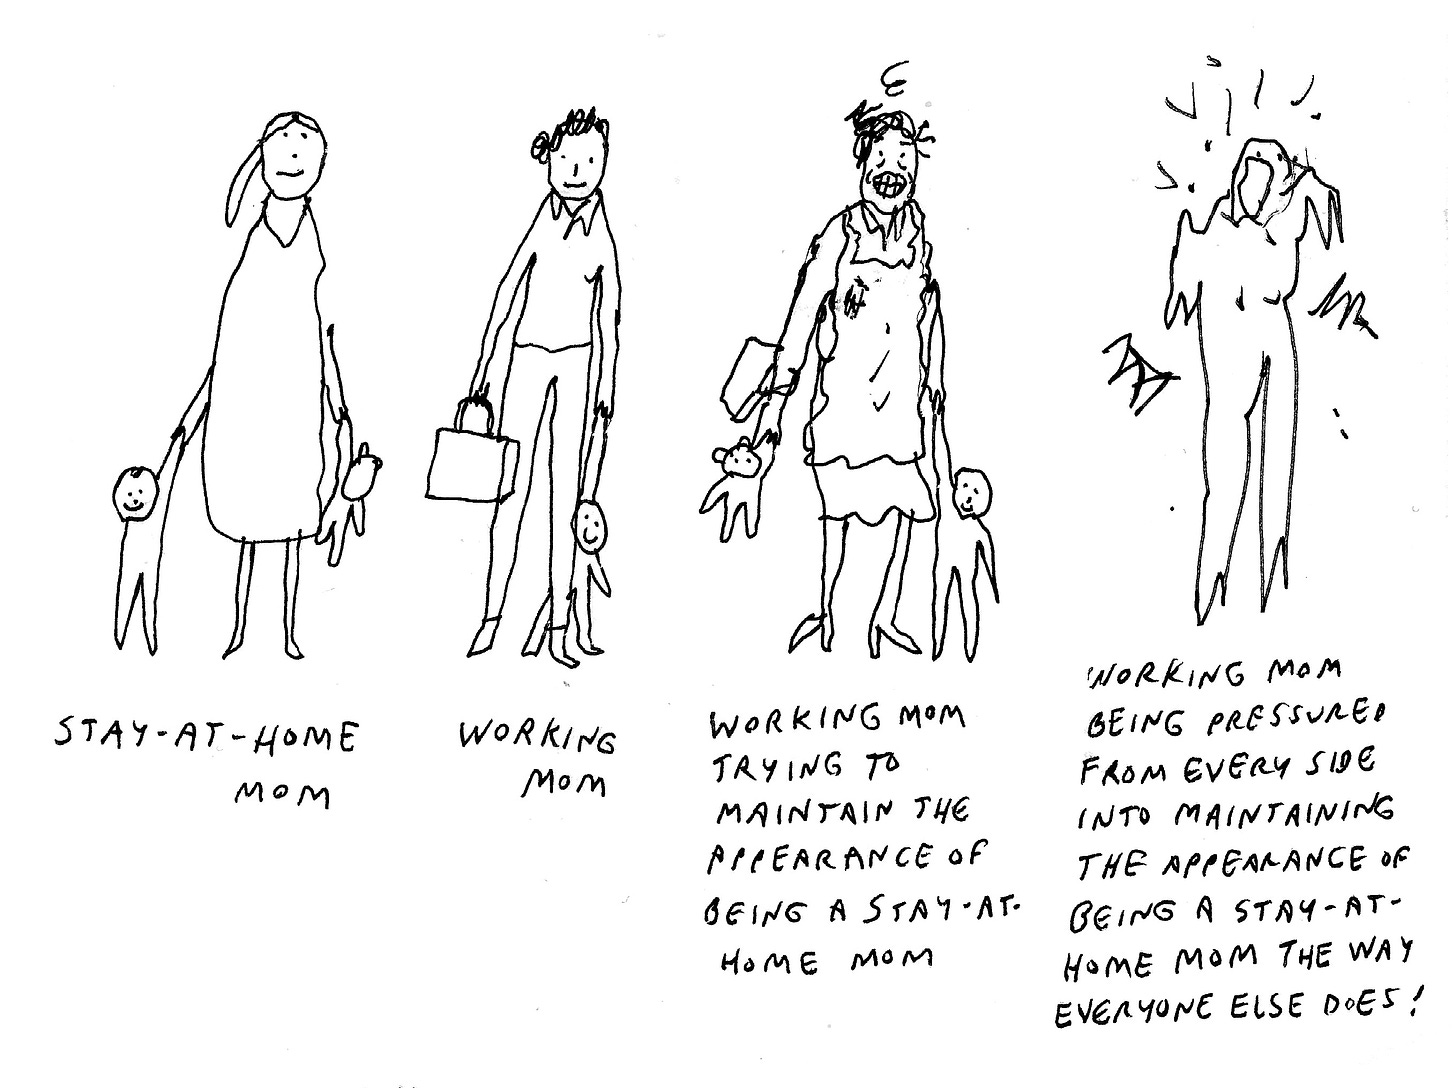 STAY-AT-HOME
MOM
WORKING
MOM
WORKING MOM
TRYING TO
MAINTAIN THE
APPEARANCE OF
BEING A STAY-AT-
HOME MOM
WORKING MOM
BEING PRESSURED
FROM EVERY SIDE
INTO MAINTAINING
THE APPEARANCE OF
BEING A STAY-AT-
HOME MOM THE WAY
EVERYONE ELSE DOES!